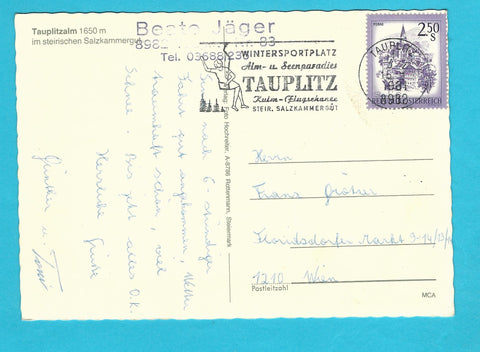 Tauplitzalm 1650 m
im steirischen Salzkammergut
Beate Jäger
8982
83
Tel. 03688/236
WINTERSPORTPLATZ
Alm- u. Seenparadies
TAUPLITZ
Kulm-Flugschanze
STEIR. SALZKAMMERGUT
TAUPLITZ
1981
8982
2.50
S
REPUBLIK ÖSTERREICH
Sind nach 6-stündiger
Fahrt gut angekommen, Wetter
traumhaft schön, viel
Schnee. Bis jetzt alles O.K.
Herzliche Grüße
Günther u. Toni
Hochreiter, A-8786 Rottenmann, Steiermark
Herrn
Franz
Floridsdorfer Markt 9-14/23/
1210 Wien
Postleitzahl
MCA